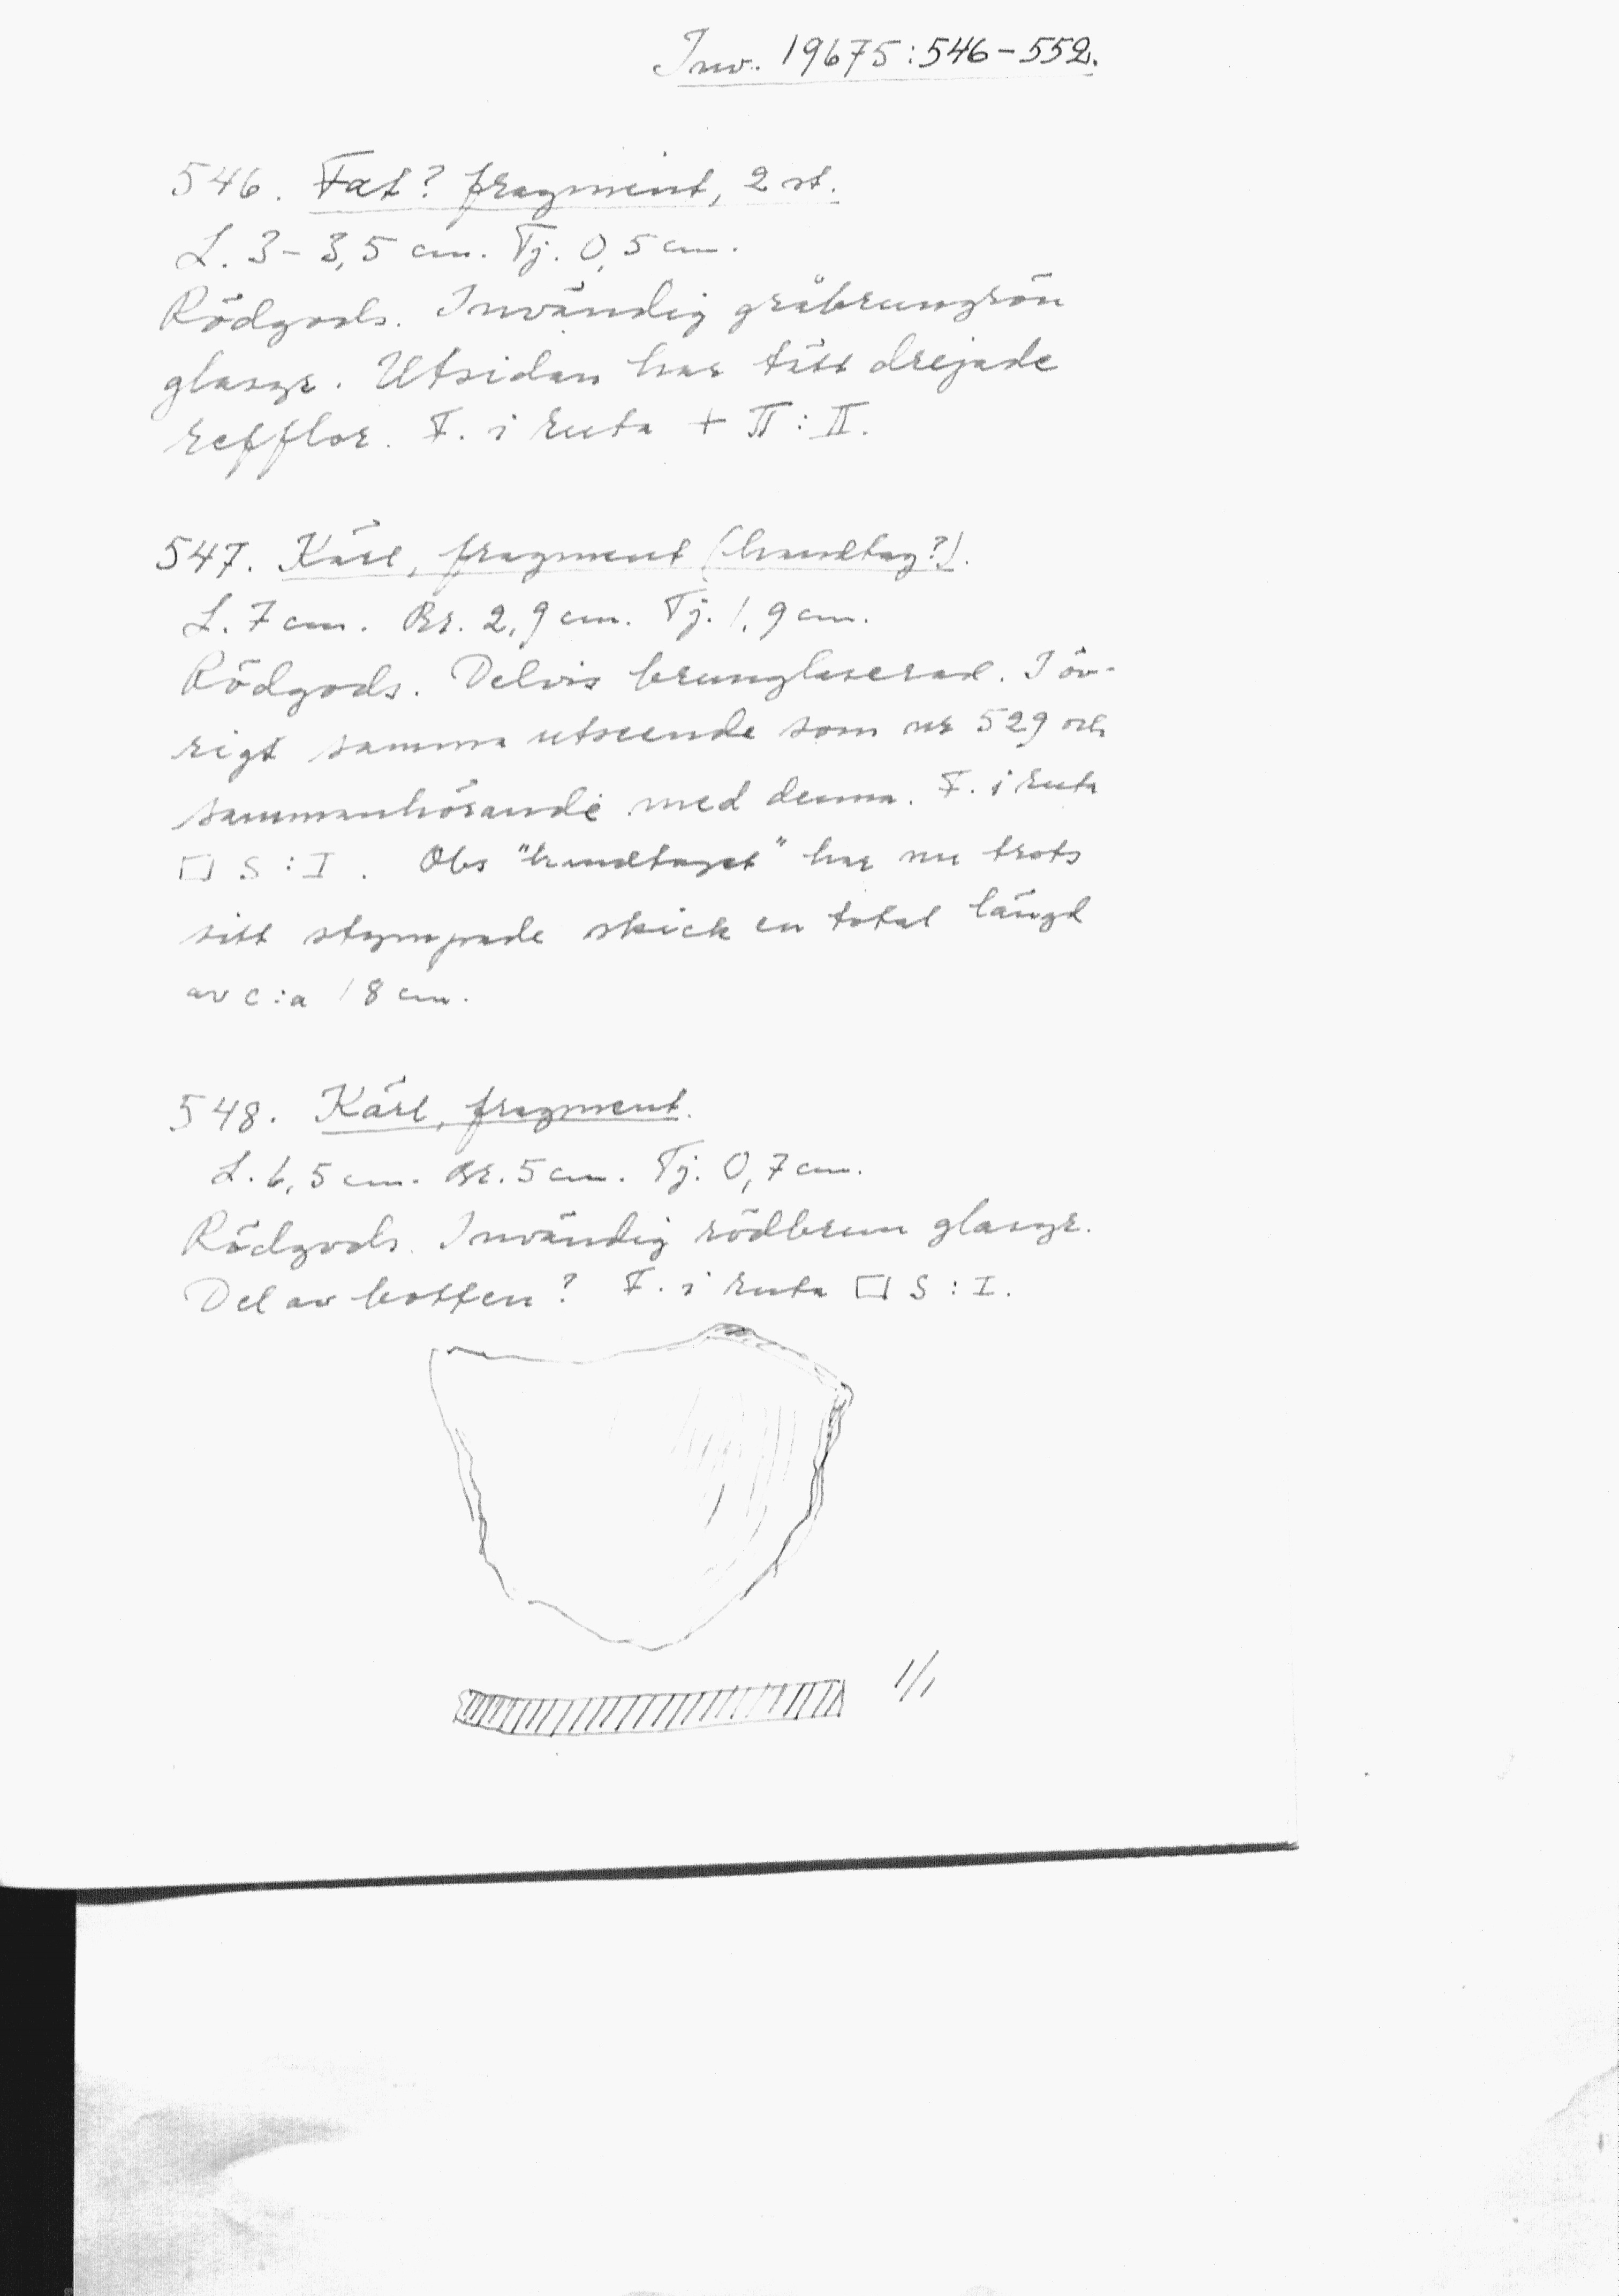 Inv. 19675:546-552.
546. Fat? fragment, 2 st.
L. 3-3,5 cm. Tj. 0,5 cm.
Rödgods. Invändig gråbrungrön
glasyr. Utsidan har tätt drejade
refflor. F. i ruta + II : II.
547. Kärl, fragment (handtag?).
L. 7 cm. Br. 2,9 cm. Tj. 1,9 cm.
Rödgods. Delvis brunglaserad. I öv-
rigt samma utseende som nr 529 och
sammanhörande med denna. F. i ruta
□ S : I. Obs "handtaget" har nu trots
sitt stympade skick en total längd
av c:a 18 cm.
548. Kärl, fragment.
L. 6,5 cm. Br. 5 cm. Tj. 0,7 cm.
Rödgods. Invändig rödbrun glasyr.
Del av botten? F. i ruta □ S : I.
1/1